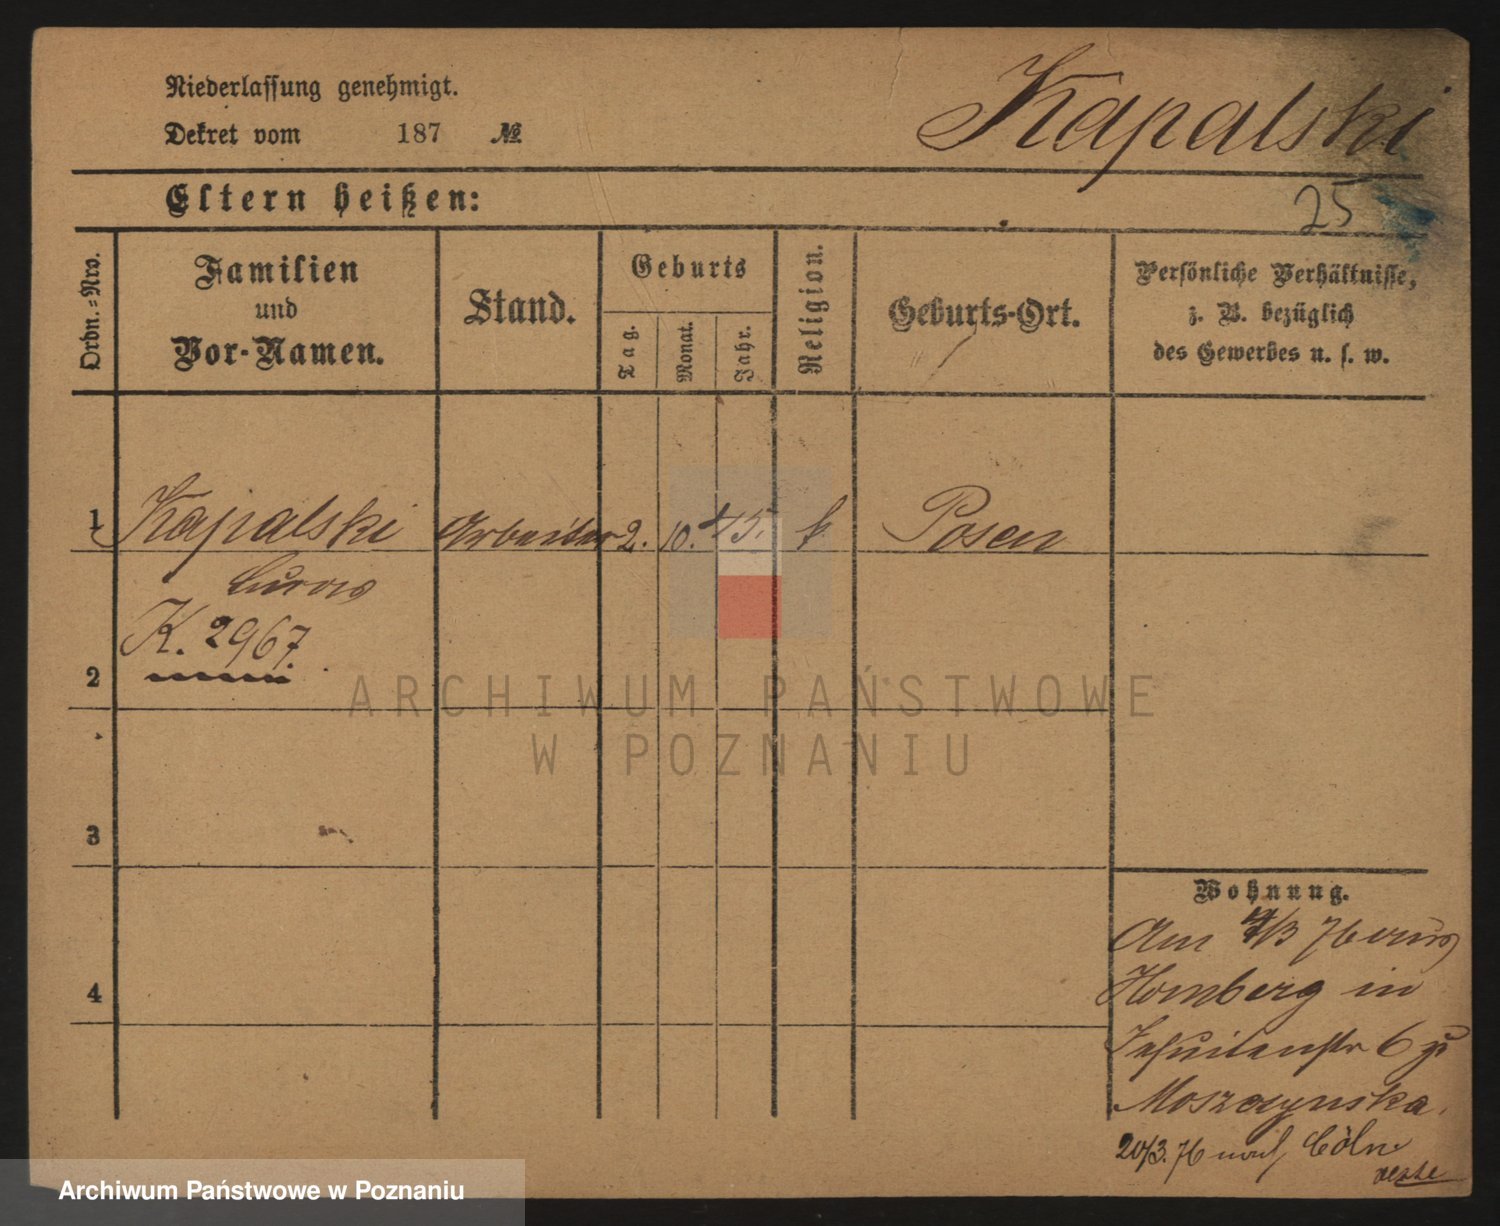 Niederlassung genehmigt.
Dekret vom 187 №
Kapalski
Eltern heißen:
25
Ordn.=Nro.
Familien
und
Vor-Namen.
Stand.
Geburts
Tag.
Monat.
Jahr.
Religion.
Geburts-Ort.
Persönliche Verhältnisse,
z. B. bezüglich
des Gewerbes u. s. w.
1 Kapalski Arbeiter 2. 10. 45. k Posen
K. 2967.
2
3
4
Wohnung.
Am 4/3 76 aus
Homberg in
Jesuitenstr 6 zu
Moszczynska.
20/3. 76 nach Cöln
ARCHIWUM PAŃSTWOWE
W POZNANIU
Archiwum Państwowe w Poznaniu